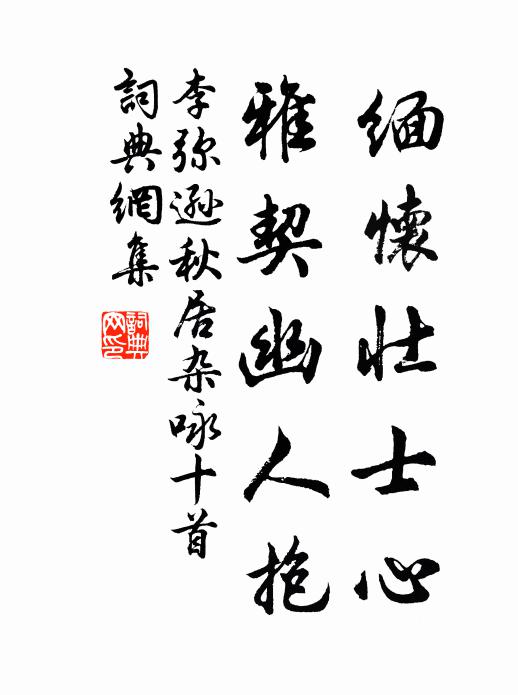 緬懷壮士心
雅契幽人抱
李弥遜秋居杂咏十首
詞典網集
詞典
网印